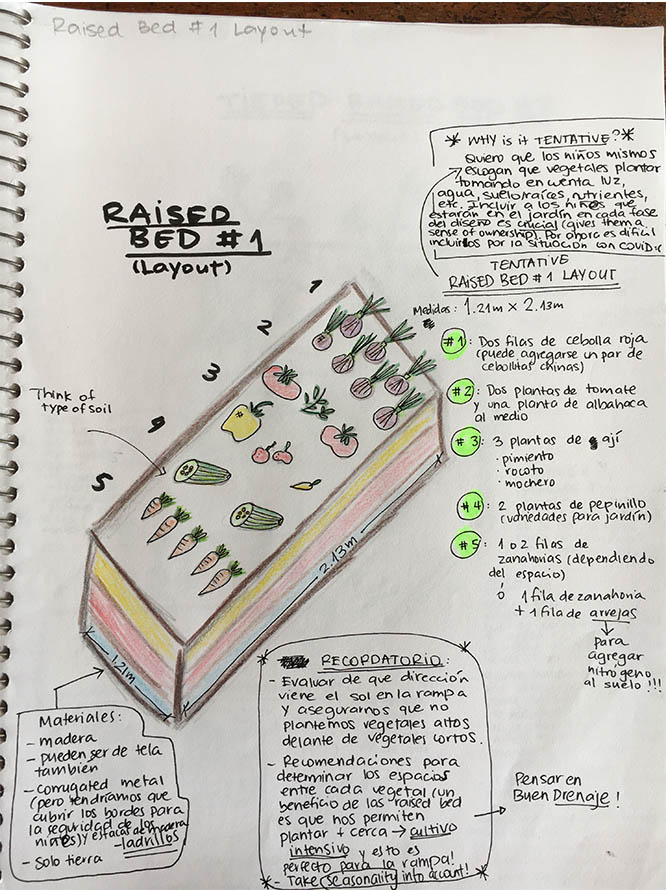 Raised Bed #1 Layout
RAISED
BED #1
(Layout)
* WHY is it TENTATIVE? *
Quiero que los niños mismos
escogan que vegetales plantar
tomando en wenta luz,
agua, suelo/raíces, nutrientes,
etc. Incluir a los niños que
estarán en el jardín en cada fase
del diseño es crucial (gives them a
sense of ownership). Por ahora es difícil
incluirlos por la situación con COVID :(
TENTATIVE
RAISED BED #1 LAYOUT
Medidas: 1.21m x 2.13m
#1: Dos filas de cebolla roja
(puede agregarse un par de
cebollitas chinas)
#2: Dos plantas de tomate
y una planta de albahaca
al medio
#3: 3 plantas de ají
· pimiento
· rocoto
· mochero
#4: 2 plantas de pepinillo
(variedades para jardín)
#5: 1 o 2 filas de
zanahorias (dependiendo
del espacio)
ó 1 fila de zanahoria
+ 1 fila de arvejas
para
agregar
nitrógeno
al suelo!!!
1
2
3
4
5
Think of
type of soil
2.13m
1.21m
Materiales:
- madera
- pueden ser de tela
también
- corrugated metal
(pero tendríamos que
cubrir los bordes para
la seguridad de los
niños) y estacas de madera
- ladrillos
- solo tierra
RECORDATORIO:
- Evaluar de que dirección
viene el sol en la rampa
y asegurarnos que no
plantemos vegetales altos
delante de vegetales cortos.
- Recomendaciones para
determinar los espacios
entre cada vegetal (un
beneficio de las raised bed
es que nos permiten
plantar + cerca → cultivo
intensivo y esto es
perfecto para la rampa!
- Take seasonality into account!
Pensar en
Buen Drenaje!